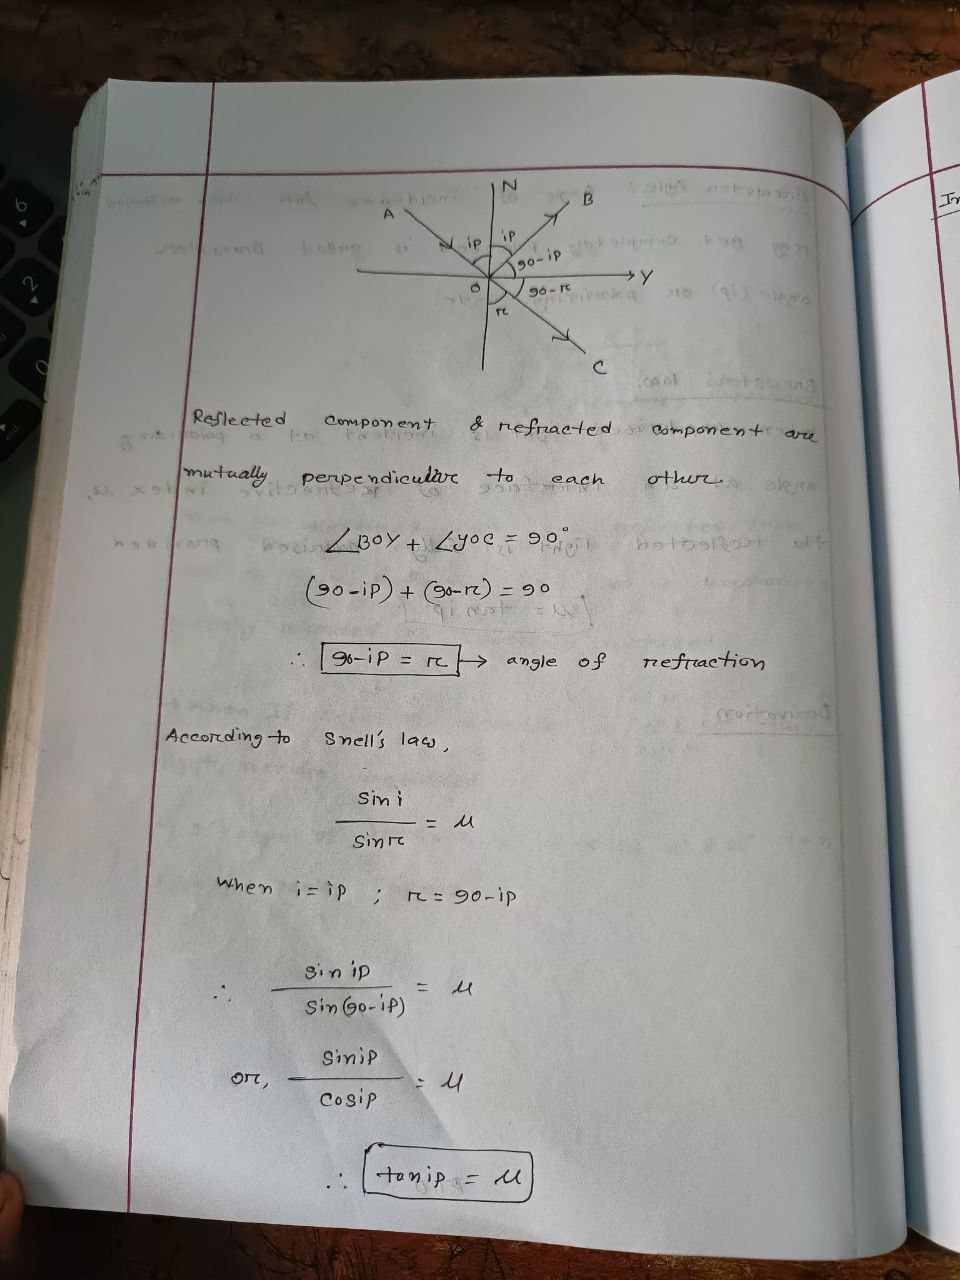 N
A
B
ip
ip
90-ip
Y
O
90-r
r
C
Reflected component & refracted component are
mutually perpendicular to each other.
∠BOY + ∠YOC = 90°
(90-ip) + (90-r) = 90
∴ 90-ip = r → angle of refraction
According to Snell's law,
sin i / sin r = μ
when i = ip ; r = 90-ip
∴ sin ip / sin(90-ip) = μ
or, sin ip / cos ip = μ
∴ tan ip = μ
In
6
2
0
end